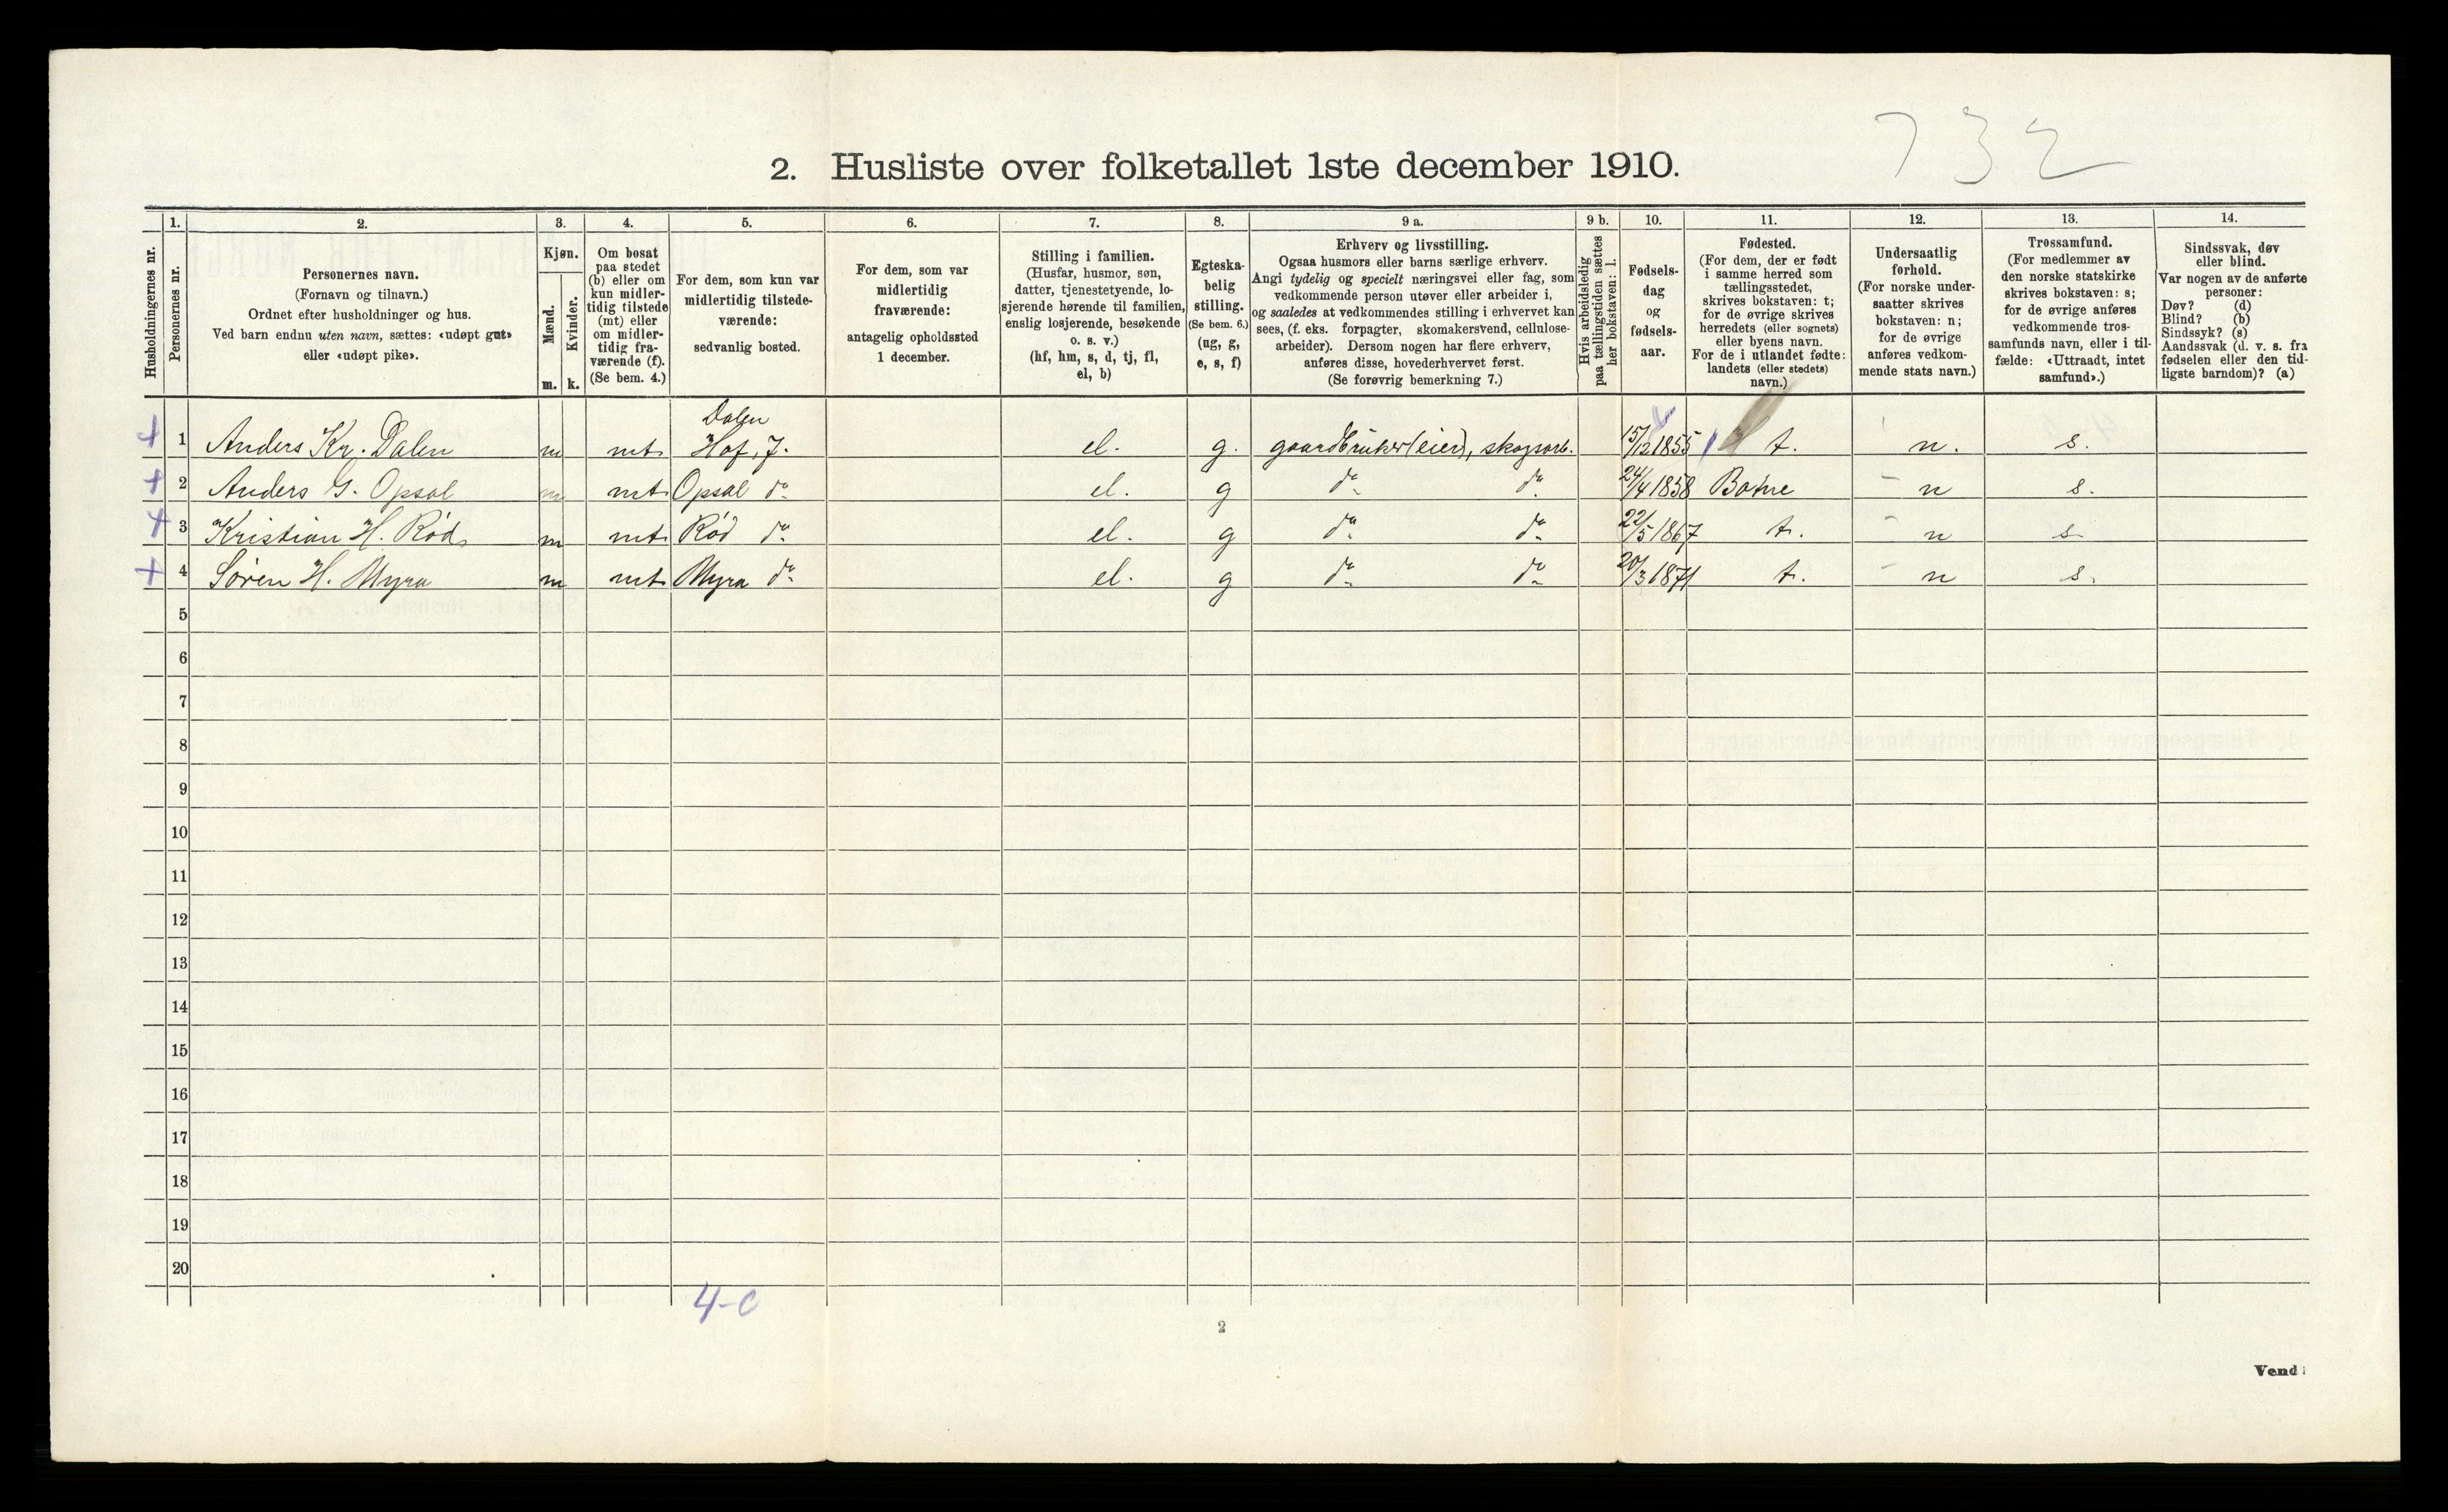 732
2. Husliste over folketallet 1ste december 1910.
Husholdningernes nr.
1.
Personernes nr.
2.
Personernes navn.
(Fornavn og tilnavn.)
Ordnet efter husholdninger og hus.
Ved barn endnu uten navn, sættes: «udøpt gut»
eller «udøpt pike».
3.
Kjøn.
Mænd.
Kvinder.
m. k.
4.
Om bosat
paa stedet
(b) eller om
kun midler-
tidig tilstede
(mt) eller
om midler-
tidig fra-
værende (f).
(Se bem. 4.)
5.
For dem, som kun var
midlertidig tilstede-
værende:
sedvanlig bosted.
6.
For dem, som var
midlertidig
fraværende:
antagelig opholdssted
1 december.
7.
Stilling i familien.
(Husfar, husmor, søn,
datter, tjenestetyende, lo-
sjerende hørende til familien,
enslig losjerende, besøkende
o. s. v.)
(hf, hm, s, d, tj, fl,
el, b)
8.
Egteska-
belig
stilling.
(Se bem. 6.)
(ug, g,
e, s, f)
9 a.
Erhverv og livsstilling.
Ogsaa husmors eller barns særlige erhverv.
Angi tydelig og specielt næringsvei eller fag, som
vedkommende person utøver eller arbeider i,
og saaledes at vedkommendes stilling i erhvervet kan
sees, (f. eks. forpagter, skomakersvend, cellulose-
arbeider). Dersom nogen har flere erhverv,
anføres disse, hovederhvervet først.
(Se forøvrig bemerkning 7.)
9 b.
Hvis arbeidsledig
paa tællingstiden sættes
her bokstaven: l.
10.
Fødsels-
dag
og
fødsels-
aar.
11.
Fødested.
(For dem, der er født
i samme herred som
tællingsstedet,
skrives bokstaven: t;
for de øvrige skrives
herredets (eller sognets)
eller byens navn.
For de i utlandet fødte:
landets (eller stedets)
navn.)
12.
Undersaatlig
forhold.
(For norske under-
saatter skrives
bokstaven: n;
for de øvrige
anføres vedkom-
mende stats navn.)
13.
Trossamfund.
(For medlemmer av
den norske statskirke
skrives bokstaven: s;
for de øvrige anføres
vedkommende tros-
samfunds navn, eller i til-
fælde: «Uttraadt, intet
samfund».)
14.
Sindssvak, døv
eller blind.
Var nogen av de anførte
personer:
Døv? (d)
Blind? (b)
Sindssyk? (s)
Aandssvak (d. v. s. fra
fødselen eller den tid-
ligste barndom)? (a)
Dalen
1 Anders Kr. Dalen m mt Hof, J. el. g. gaardbruker (eier), skogsarb. 15/12 1855 t. n. s.
2 Anders G. Opsal m mt Opsal do el. g do do 24/4 1858 Botne n s.
3 Kristian H. Rød m mt Rød do el. g do do 22/5 1867 t. n s
4 Søren H. Myra m mt Myra do el. g do do 20/3 1871 t. n s.
5
6
7
8
9
10
11
12
13
14
15
16
17
18
19
20
4-0
2
Vend